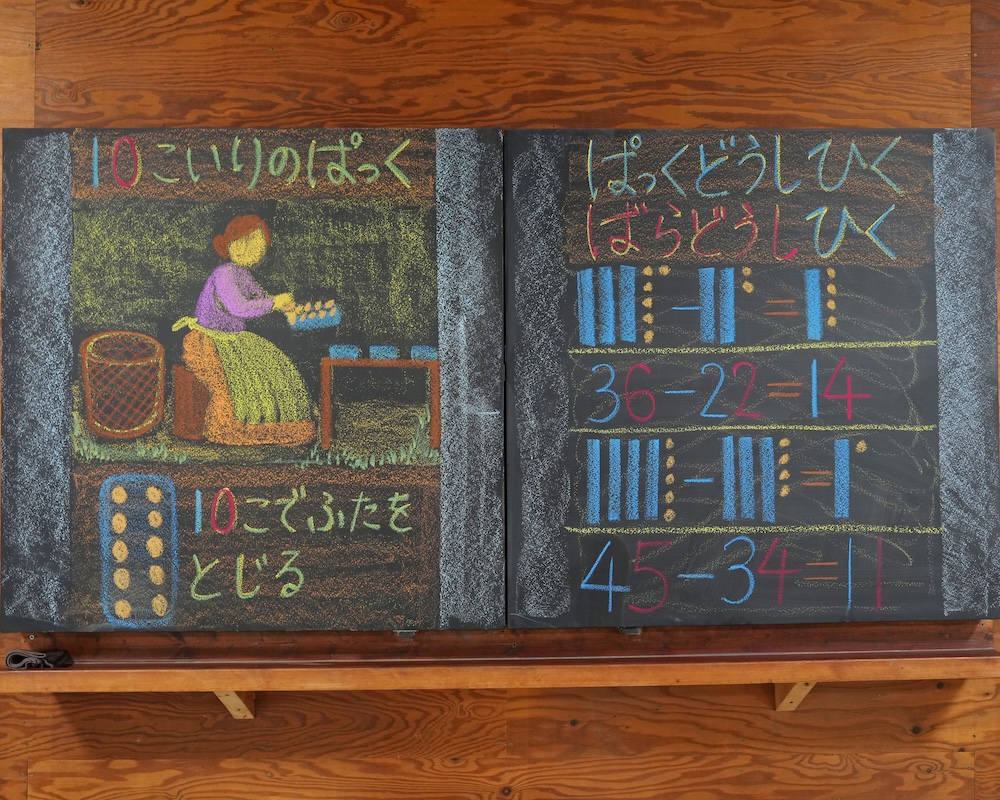 10こいりのぱっく
10こでふたを
とじる
ぱっくどうしひく
ばらどうしひく
36-22=14
45-34=11